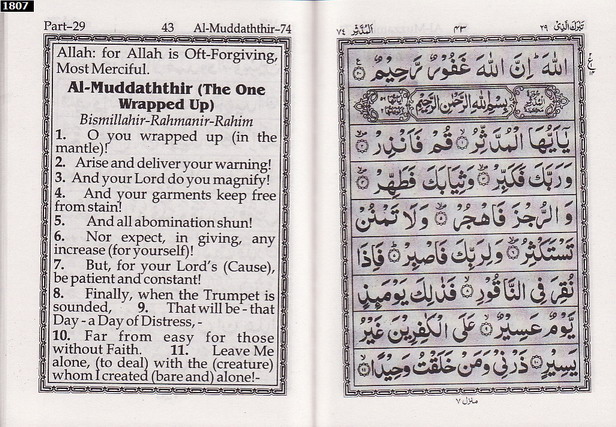 1807
Part–29 43 Al-Muddaththir–74
Allah: for Allah is Oft-Forgiving,
Most Merciful.
Al-Muddaththir (The One
Wrapped Up)
Bismillahir-Rahmanir-Rahim
1. O you wrapped up (in the
mantle)!
2. Arise and deliver your warning!
3. And your Lord do you magnify!
4. And your garments keep free
from stain!
5. And all abomination shun!
6. Nor expect, in giving, any
increase (for yourself)!
7. But, for your Lord's (Cause),
be patient and constant!
8. Finally, when the Trumpet is
sounded, 9. That will be - that
Day - a Day of Distress, -
10. Far from easy for those
without Faith. 11. Leave Me
alone, (to deal) with the (creature)
whom I created (bare and) alone!-
تبٰرك الذی ۲۹ ۴۳ المدثر ۷۴
اللّٰهَ ؕ اِنَّ اللّٰهَ غَفُوْرٌ رَّحِیْمٌ
بِسْمِ اللّٰهِ الرَّحْمٰنِ الرَّحِیْمِ
یٰۤاَیُّهَا الْمُدَّثِّرُ ۙ۱ قُمْ فَاَنْذِرْ ۪ۙ۲
وَ رَبَّكَ فَكَبِّرْ ۪ۙ۳ وَ ثِیَابَكَ فَطَهِّرْ ۪ۙ۴
وَ الرُّجْزَ فَاهْجُرْ ۪ۙ۵ وَ لَا تَمْنُنْ
تَسْتَكْثِرُ ۪ۙ۶ وَ لِرَبِّكَ فَاصْبِرْ ؕ۷ فَاِذَا
نُقِرَ فِی النَّاقُوْرِ ۙ۸ فَذٰلِكَ یَوْمَىِٕذٍ
یَّوْمٌ عَسِیْرٌ ۙ۹ عَلَی الْكٰفِرِیْنَ غَیْرُ
یَسِیْرٍ ۱۰ ذَرْنِیْ وَ مَنْ خَلَقْتُ وَحِیْدًا ۙ۱۱
منزل ۷